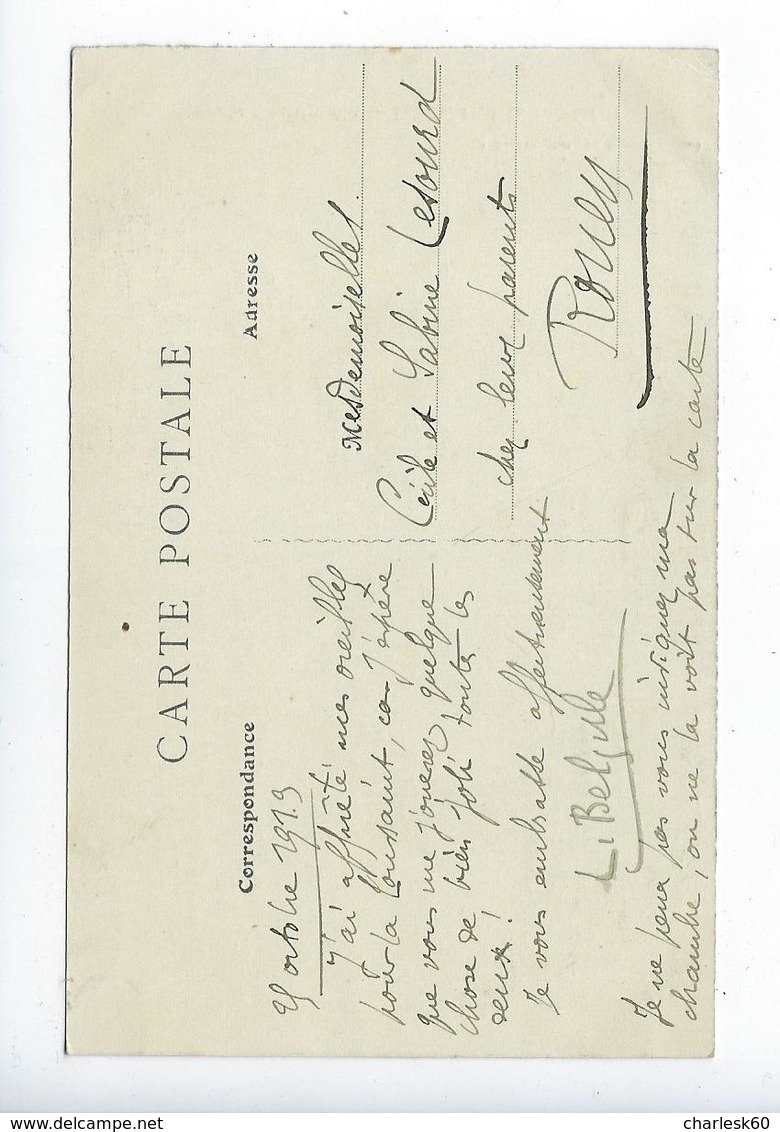 CARTE POSTALE
Correspondance
Adresse
octobre 1913
J'ai affuté mes oreilles
pour la Toussaint, car j'espère
que vous me jouerez quelque
chose de bien joli toutes les
deux!
Je vous embrasse affectueusement
Je ne peux pas vous indiquer ma
chambre, on ne la voit pas sur la carte
Mesdemoiselles
Cécile et Sabine Lesourd
chez leurs parents
Rouen
charlesk60
delcampe.net